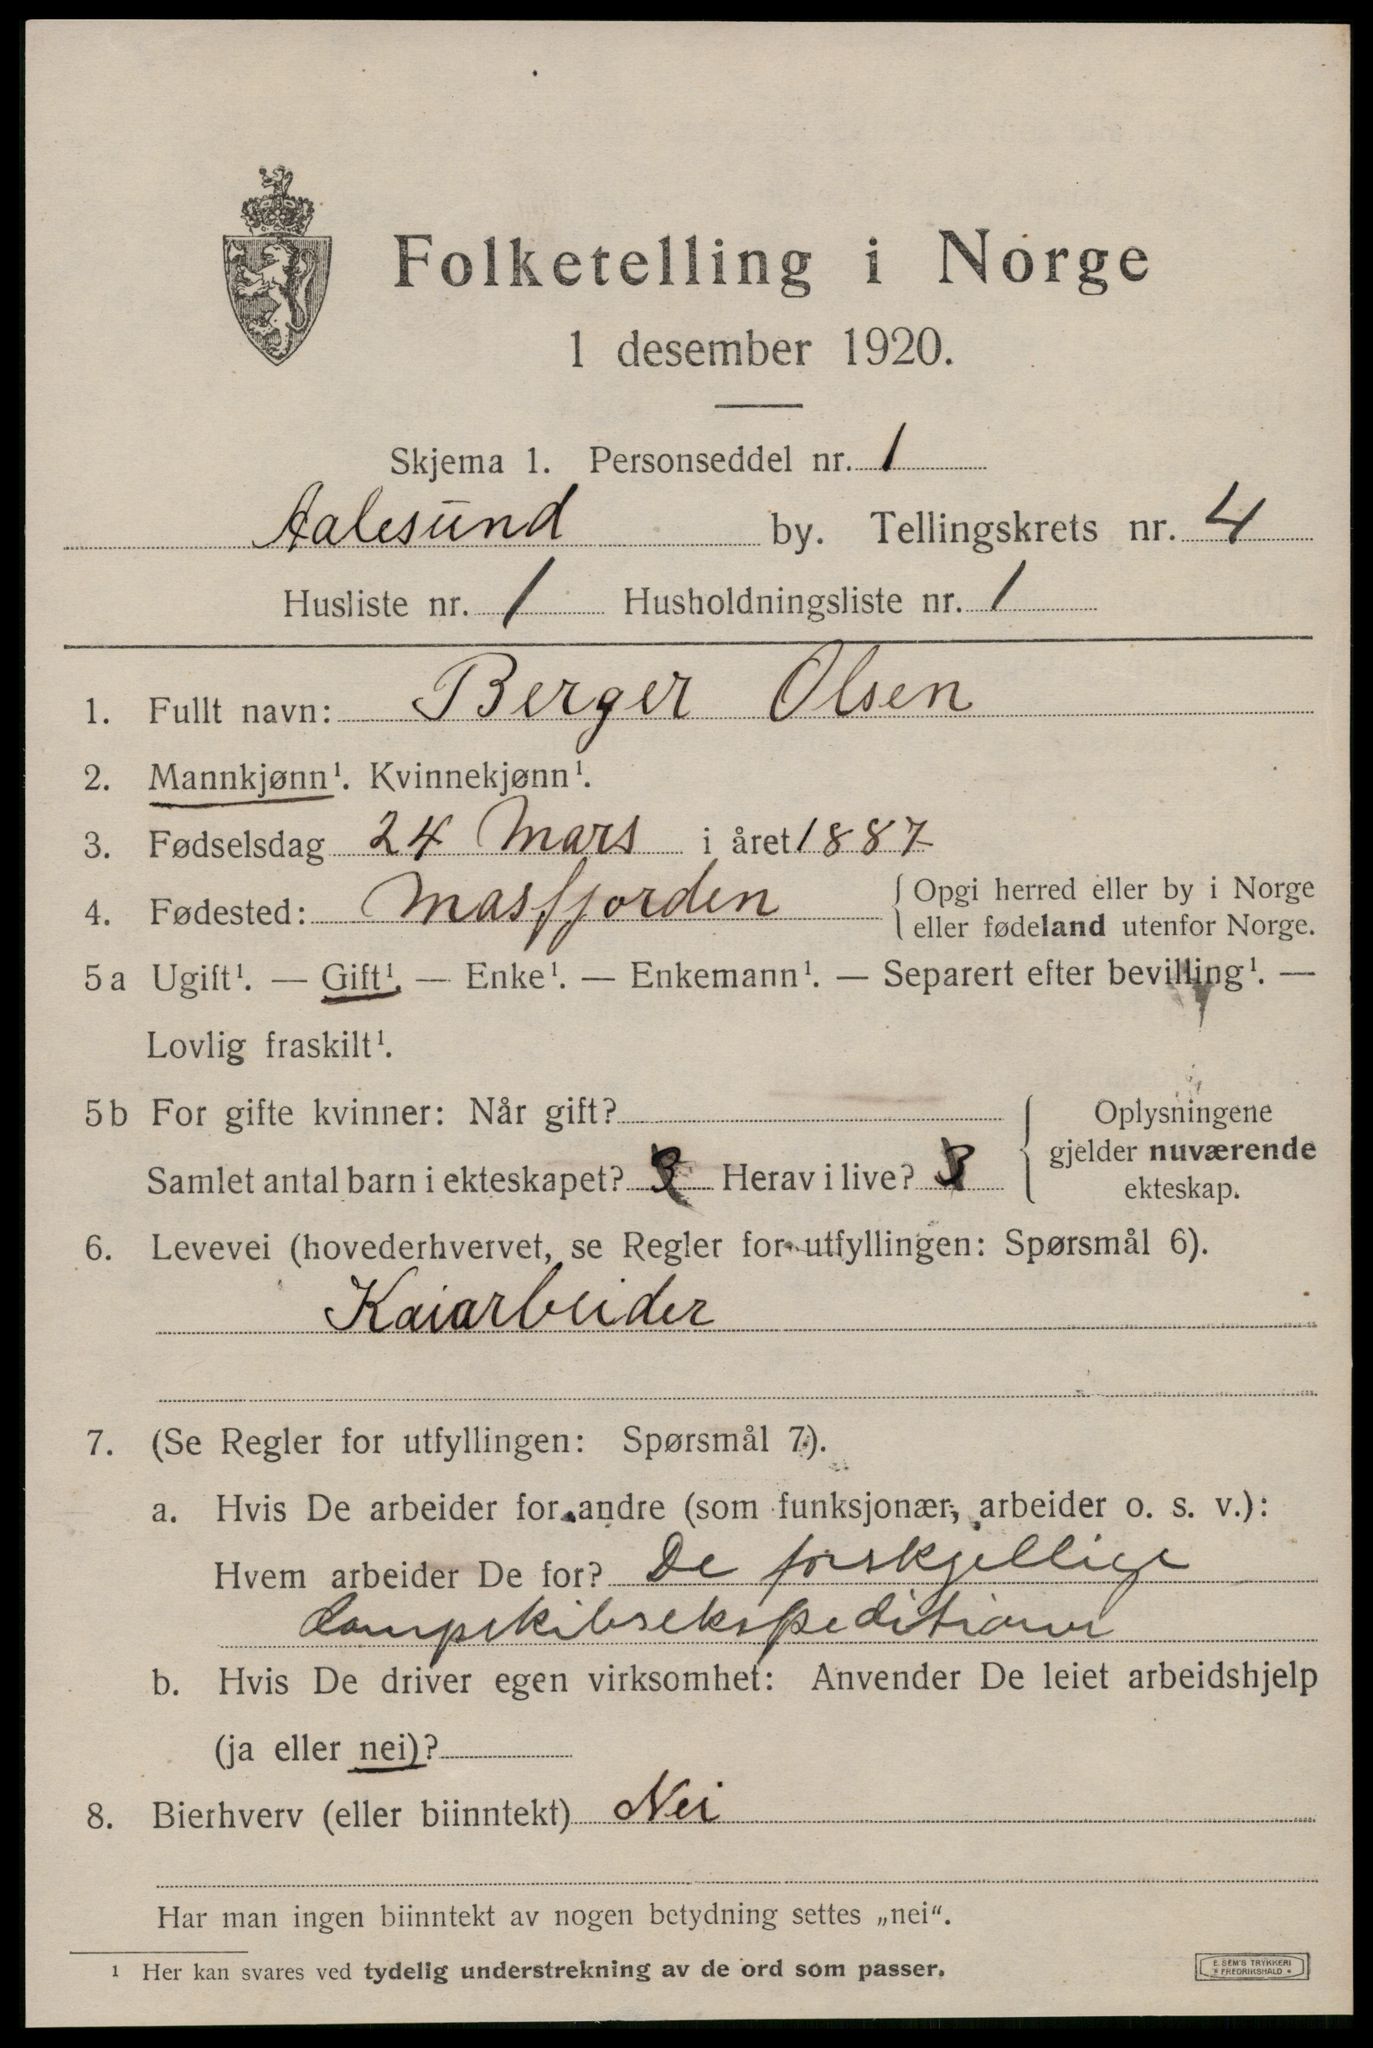 Folketelling i Norge
1 desember 1920.
Skjema 1. Personseddel nr. 1
Aalesund by. Tellingskrets nr. 4
Husliste nr. 1 Husholdningsliste nr. 1
1. Fullt navn: Berger Olsen
2. Mannkjønn¹. Kvinnekjønn¹.
3. Fødselsdag 24 Mars i året 1887
4. Fødested: Masfjorden { Opgi herred eller by i Norge
eller fødeland utenfor Norge.
5 a Ugift¹. — Gift¹. — Enke¹. — Enkemann¹. — Separert efter bevilling¹. —
Lovlig fraskilt¹.
5 b For gifte kvinner: Når gift?
Samlet antal barn i ekteskapet? 3 Herav i live? 3
Oplysningene
gjelder nuværende
ekteskap.
6. Levevei (hovederhvervet, se Regler for utfyllingen: Spørsmål 6).
Kaiarbeider
7. (Se Regler for utfyllingen: Spørsmål 7).
a. Hvis De arbeider for andre (som funksjonær, arbeider o. s. v.):
Hvem arbeider De for? De forskjellige
dampskibsekspeditioner
b. Hvis De driver egen virksomhet: Anvender De leiet arbeidshjelp
(ja eller nei)?
8. Bierhverv (eller biinntekt) Nei
Har man ingen biinntekt av nogen betydning settes „nei“.
¹ Her kan svares ved tydelig understrekning av de ord som passer.
E. SEM'S TRYKKERI
* FREDRIKSHALD *